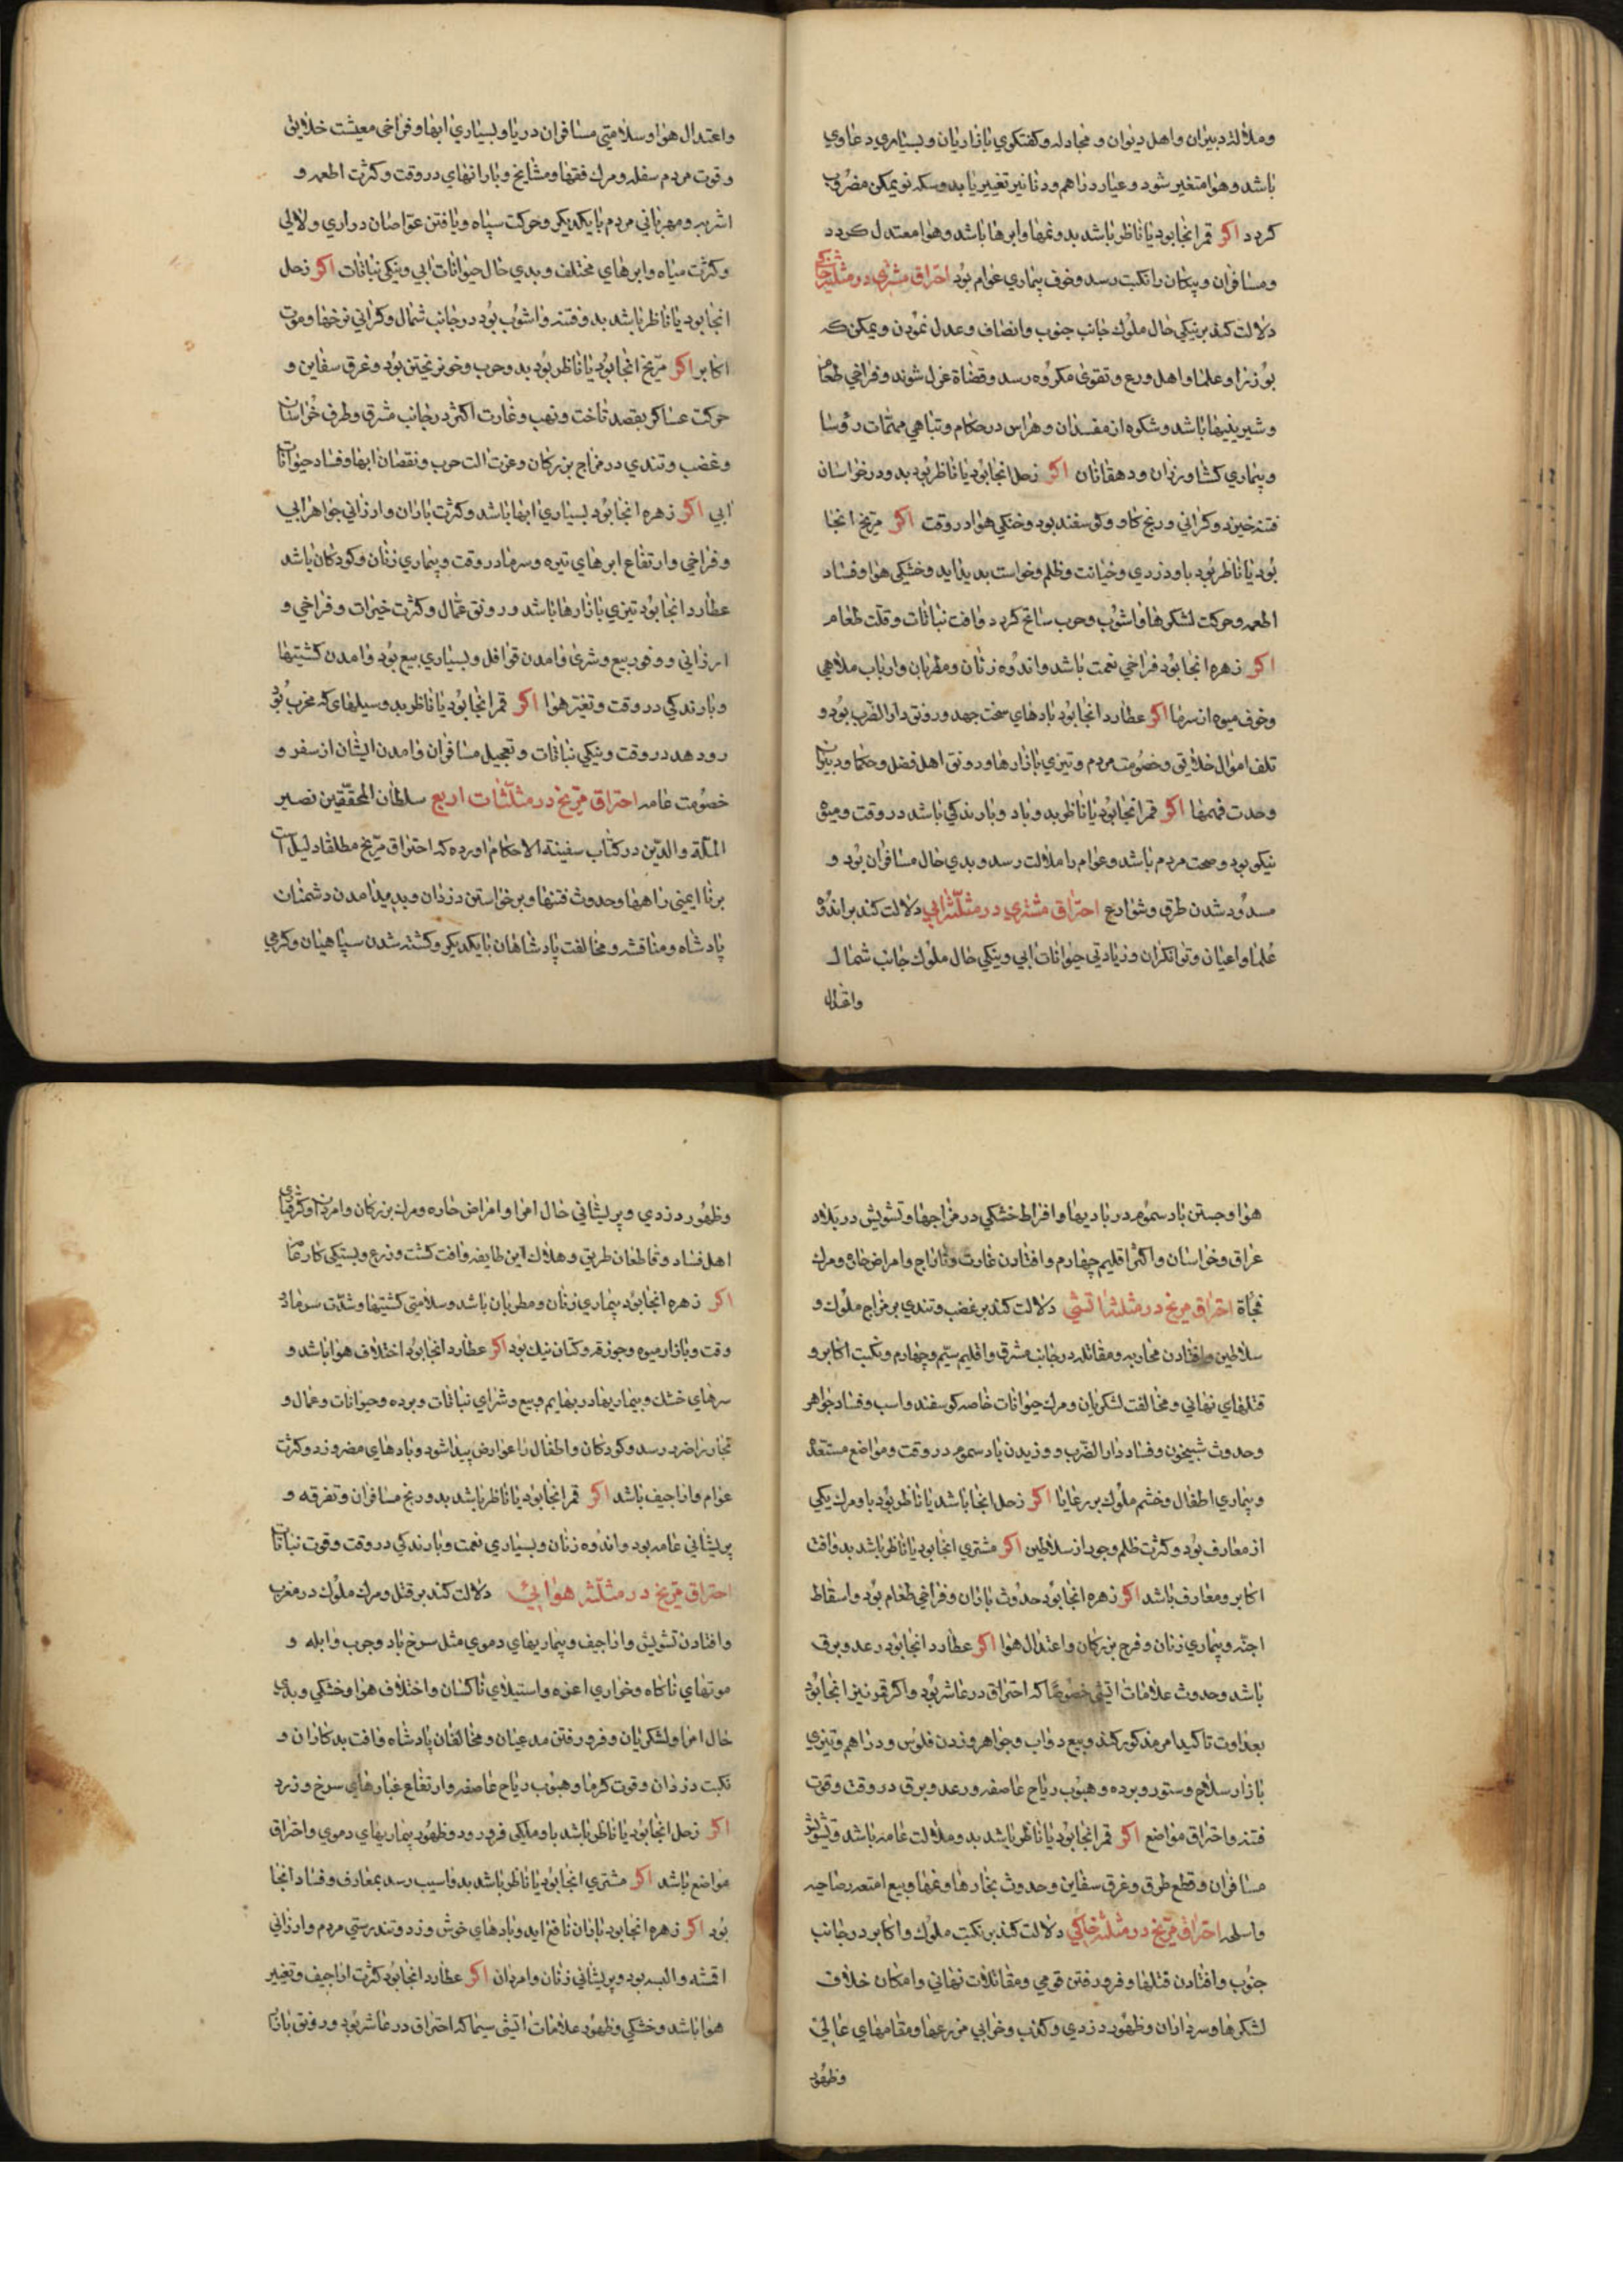 وملالة دبیران واهل دیوان و مجادله وکفتکوی بازاریان وبسیاری دعاوی
باشد وهوا متغیر شود وعیار دراهم ودنانیر تغییر یابد وسکه نو یمکن مضروب
کردد اکر قمر انجا بود یا ناظر باشد بدو نمها وابرها باشد وهوا معتدل کردد
ومسافران وپیکان را نکبت رسد وخوف بیماری عوام بود احتراق مشتری در مثلثه خاکی
دلالت کند بر نیکی حال ملوک جانب جنوب وانصاف وعدل نمودن ویمکن که
بوزرا وعلما واهل ورع وتقوی مکروه رسد وقضاة عزل شوند وفراخی طعام
وشیرینیها باشد وشکوه از مفسدان وهراس در حکام وتباهی مهمّات رؤسا
وبیماری کشاورزان ودهقانان اکر زحل انجا بود یا ناظر بود بدو در خراسان
فتنه خیزد وکرانی ورنج کاو وکوسفند بود وخنکی هوا در وقت اکر مریخ انجا
بود یا ناظر بود باو دزدی وخیانت وظلم وخواست بدید اید وخشکی هوا وفساد
اطعمه وحرکت لشکرها واشوب وحرب سانح کردد وافت نباتات وقلت طعام
اکر زهره انجا بود فراخی نعمت باشد واندوه زنان ومطربان وارباب ملاهی
وخوف میوه از سرما اکر عطارد انجا بود بادهای سخت جهد ورونق دار الضرب بود و
تلف اموال خلایق وخصومت مردم وتیزی بازارها ورونق اهل فضل وحکما ودبیران
وحدت فهمها اکر قمر انجا بود یا ناظر بدو باد وبارندکی باشد در وقت ومیوه
نیکو بود وصحت مردم باشد وعوام را ملالت رسد وبدی حال مسافران بود و
مسدود شدن طرق وشوارع احتراق مشتری در مثلثه ابی دلالت کند بر اندوه
علما واعیان وتوانکران وزیادتی حیوانات ابی ونیکی حال ملوک جانب شمال
واعتدال
واعتدال هوا وسلامتی مسافران دریا وبسیاری ابها وفراخی معیشت خلایق
وقوت مردم سفله ومرک فقها ومشایخ وبارانهای در وقت وکثرت اطعمه و
اشربه ومهربانی مردم با یکدیکر وحرکت سپاه ویافتن غواصان دراری ولالی
وکثرت میاه وابرهای مختلف وبدی حال حیوانات ابی ونیکی نباتات اکر زحل
انجا بود یا ناظر باشد بدو فتنه واشوب بود در جانب شمال وکرانی نرخها وموت
اکابر اکر مریخ انجا بود یا ناظر بود بدو حرب وخونریختن بود وغرق سفاین و
حرکت عساکر بقصد تاخت ونهب وغارت اکثر در جانب مشرق وطرف خراسان
وغضب وتندی در مزاج بزرکان وعزت الت حرب ونقصان ابها وفساد حیوانات
ابی اکر زهره انجا بود بسیاری ابها باشد وکثرت باران وارزانی جواهر ابی
وفراخی وارتفاع ابرهای تیره وسرما در وقت وبیماری زنان وکودکان باشد
عطارد انجا بود تیزی بازارها باشد ورونق عمّال وکثرت خیرات وفراخی و
ارزانی ووفور بیع وشری وامدن قوافل وبسیاری بیع بود وامدن کشتیها
وبارندکی در وقت وتغیّر هوا اکر قمر انجا بود یا ناظر بدو سیلهای که مخرب بود
رود هد در وقت ونیکی نباتات وتعجیل مسافران وامدن ایشان از سفر و
خصومت عامه احتراق مرّیخ در مثلّثات اربع سلطان المحقّقین نصیر
الملّة والدّین در کتاب سفینة الاحکام اورده که احتراق مرّیخ مطلقا دلیل است
بر ناایمنی راهها وحدوث فتنها وبرخواستن دزدان وپدید امدن دشمنان
پادشاه ومناقشه ومخالفت پادشاهان با یکدیکر وکشته شدن سپاهیان وکرمی
هوا وجستن باد سموم در بادیها وافراط خشکی در مزاجها وتشویش در بلاد
عراق وخراسان واکثر اقلیم چهارم وافتادن غارت وتاراج وامراض حاره ومرک
فجاة احتراق مریخ در مثلثه اتشی دلالت کند بر غضب وتندی بر مزاج ملوک و
سلاطین وافتادن محاربه ومقاتله در جانب مشرق واقلیم سیّم وچهارم ونکبت اکابر و
قتلهای نهانی ومخالفت لشکریان ومرک حیوانات خاصه کوسفند واسب وفساد جواهر
وحدوث شبیخون وفساد دار الضّرب ووزیدن باد سموم در وقت ومواضع مستعدّه
وبیماری اطفال وخشم ملوک بر رعایا اکر زحل انجا باشد یا ناظر بود باو مرک یکی
از معارف بود وکثرت ظلم وجور از سلاطین اکر مشتری انجا بود یا ناظر باشد بدو افت
اکابر ومعارف باشد اکر زهره انجا بود حدوث باران وفراخی طعام بود واسقاط
اجنّه وبیماری زنان وفرح بزرکان واعتدال هوا اکر عطارد انجا بود رعد وبرق
باشد وحدوث علامات اتشی خصوصا که احتراق در عاشر بود واکر قمر نیز انجا بود
بعداوت تاکید امر مذکور کند وبیع دواب وجواهر وزدن فلوس ودراهم وتیزی
بازار سلاح وستور وبرده وهبوب ریاح عاصفه ورعد وبرق در وقت وقوت
فتنه واحتراق مواضع اکر قمر انجا بود یا ناظر باشد بدو ملالت عامه باشد وتشویش
مسافران وقطع طرق وغرق سفاین وحدوث بخارها وغمها وبیع امتعه رصاحیه
واسلحه احتراق مرّیخ در مثلثه خاکی دلالت کند بر نکبت ملوک واکابر در جانب
جنوب وافتادن قتلها وفرورفتن قومی ومقاتلات نهانی وامکان خلاف
لشکرها وسرداران وظهور دزدی وکذب وخرابی مزرعها ومقامهای عالی
وظهور
وظهور دزدی وپریشانی حال امرا وامراض حاره ومرک بزرکان وامردان وکرفتاری
اهل فساد وقاطعان طریق وهلاک این طایفه وافت کشت وزرع وبستکی کار عمّال
اکر زهره انجا بود بیماری زنان ومطربان باشد وسلامتی کشتیها وشدّت سرما در
وقت وبازار میوه وجوزقه وکتان نیک بود اکر عطارد انجا بود اختلاف هوا باشد و
سرمای خشک وبیماریها در بهایم وبیع وشرای نباتات وبرده وحیوانات وعمال و
تجار را ضرر رسد وکودکان واطفال را عوارض پیدا شود وبادهای مضر وزد وکثرت
عوام واراجیف باشد اکر قمر انجا بود یا ناظر باشد بدو رنج مسافران وتفرقه و
پریشانی عامه بود واندوه زنان وبسیاری نعمت وبارندکی در وقت وقوت نباتات
احتراق مرّیخ در مثلّثه هوایی دلالت کند بر قتل ومرک ملوک در مغرب
وافتادن تشویش واراجیف وبیماریهای دموی مثل سرخ باد وجرب وابله و
موتهای ناکاه وخواری اعزه واستیلای ناکسان واختلاف هوا وخشکی وبدی
حال امرا ولشکریان وفرو رفتن مدعیان ومخالفان پادشاه وافت بدکاران و
نکبت دزدان وقوت کرما وهبوب ریاح عاصفه وارتفاع غبارهای سرخ وزرد
اکر زحل انجا بود یا ناظر باشد باو ملکی فرو رود وظهور بیماریهای دموی واحتراق
مواضع باشد اکر مشتری انجا بود یا ناظر باشد بدو اسیب رسد بمعارف وفساد انجا
بود اکر زهره انجا بود باران نافع اید وبادهای خوش وزد وتندرستی مردم وارزانی
اقشه والبسه بود وپریشانی زنان وامردان اکر عطارد انجا بود کثرت اراجیف وتغییر
هوا باشد وخشکی وظهور علامات اتشی سیما که احتراق در عاشر بود ورونق بازار